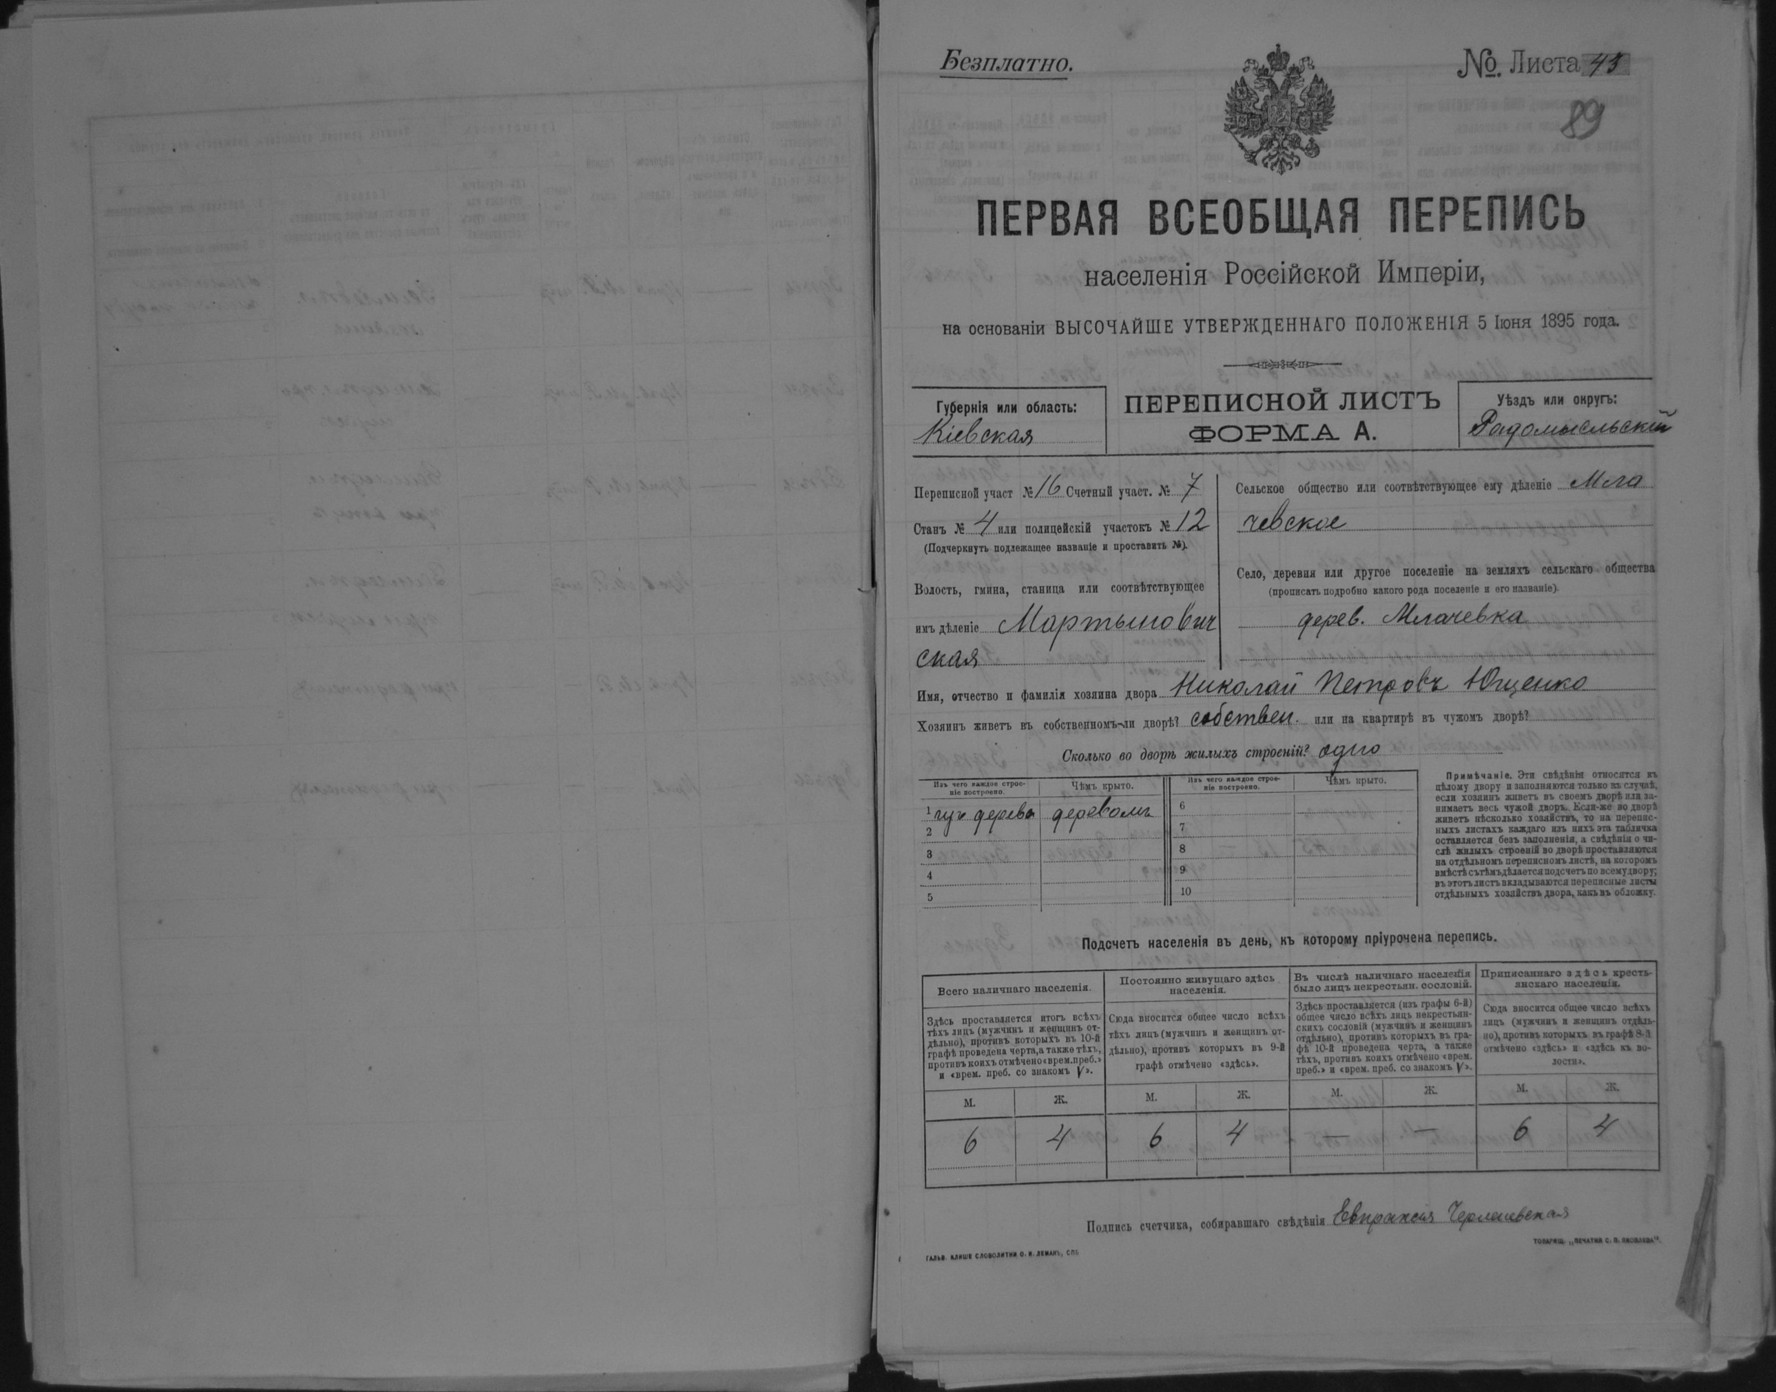 Безплатно.
№. Листа 43
89
ПЕРВАЯ ВСЕОБЩАЯ ПЕРЕПИСЬ
населенія Россійской Имперіи,
на основаніи ВЫСОЧАЙШЕ УТВЕРЖДЕННАГО ПОЛОЖЕНІЯ 5 Іюня 1895 года.
Губернія или область:
Кіевская
ПЕРЕПИСНОЙ ЛИСТЪ
ФОРМА А.
Уѣздъ или округъ:
Радомысльскій
Переписной участ № 16 Счетный участ. № 7
Станъ № 4 или полицейскій участокъ № 12
(Подчеркнуть подлежащее названіе и проставить №).
Волость, гмина, станица или соотвѣтствующее
имъ дѣленіе Мартынович
ская
Сельское общество или соотвѣтствующее ему дѣленіе Мла
чевское
Село, деревня или другое поселеніе на земляхъ сельскаго общества
(прописать подробно какого рода поселеніе и его названіе)
дерев. Млачевка
Имя, отчество и фамилія хозяина двора Николай Петровъ Ющенко
Хозяинъ живетъ въ собственномъ-ли дворѣ? собствен. или на квартирѣ въ чужомъ дворѣ?
Сколько во дворѣ жилыхъ строеній? одно
Изъ чего каждое строе-
ніе построено.
Чѣмъ крыто.
1 изъ дерева деревомъ
2
3
4
5
Изъ чего каждое строе-
ніе построено.
Чѣмъ крыто.
6
7
8
9
10
Примѣчаніе. Эти свѣдѣнія относятся къ
цѣлому двору и заполняются только въ случаѣ,
если хозяинъ живетъ въ своемъ дворѣ или за-
нимаетъ весь чужой дворъ. Если-же во дворѣ
живетъ нѣсколько хозяйствъ, то на перепис-
ныхъ листахъ каждаго изъ нихъ эта табличка
оставляется безъ заполненія, а свѣдѣнія о чи-
слѣ жилыхъ строеній во дворѣ проставляются
на отдѣльномъ переписномъ листѣ, на которомъ
вмѣстѣ съ тѣмъ дѣлается подсчетъ по всему двору;
въ этотъ листъ вкладываются переписные листы
отдѣльныхъ хозяйствъ двора, какъ въ обложку.
Подсчетъ населенія въ день, къ которому пріурочена перепись.
Всего наличнаго населенія.
Здѣсь проставляется итогъ всѣхъ
тѣхъ лицъ (мужчинъ и женщинъ от-
дѣльно), противъ которыхъ въ 10-й
графѣ проведена черта, а также тѣхъ,
противъ коихъ отмѣчено «врем. преб.»
и «врем. преб. со знакомъ V».
М. Ж.
6 4
Постоянно живущаго здѣсь
населенія.
Сюда вносится общее число всѣхъ
тѣхъ лицъ (мужчинъ и женщинъ от-
дѣльно), противъ которыхъ въ 9-й
графѣ отмѣчено «здѣсь».
М. Ж.
6 4
Въ числѣ наличнаго населенія
было лицъ некрестьян. сословій.
Здѣсь проставляется (изъ графы 6-й)
общее число всѣхъ лицъ некрестьян-
скихъ сословій (мужчинъ и женщинъ
отдѣльно), противъ которыхъ въ гра-
фѣ 10-й проведена черта, а также
тѣхъ, противъ коихъ отмѣчено «врем.
преб.» и «врем. преб. со знакомъ V».
М. Ж.
— —
Приписаннаго здѣсь кресть-
янскаго населенія.
Сюда вносится общее число всѣхъ
лицъ (мужчинъ и женщинъ отдѣль-
но), противъ которыхъ въ графѣ 8-й
отмѣчено «здѣсь» и «здѣсь въ во-
лости».
М. Ж.
6 4
Подпись счетчика, собиравшаго свѣдѣнія Евпраксія
ГАЛЬВ. КЛИШЕ СЛОВОЛИТНИ О. И. ЛЕМАНЪ, СПБ
ТОВАРИЩ. „ПЕЧАТНЯ С. П. ЯКОВЛЕВА".